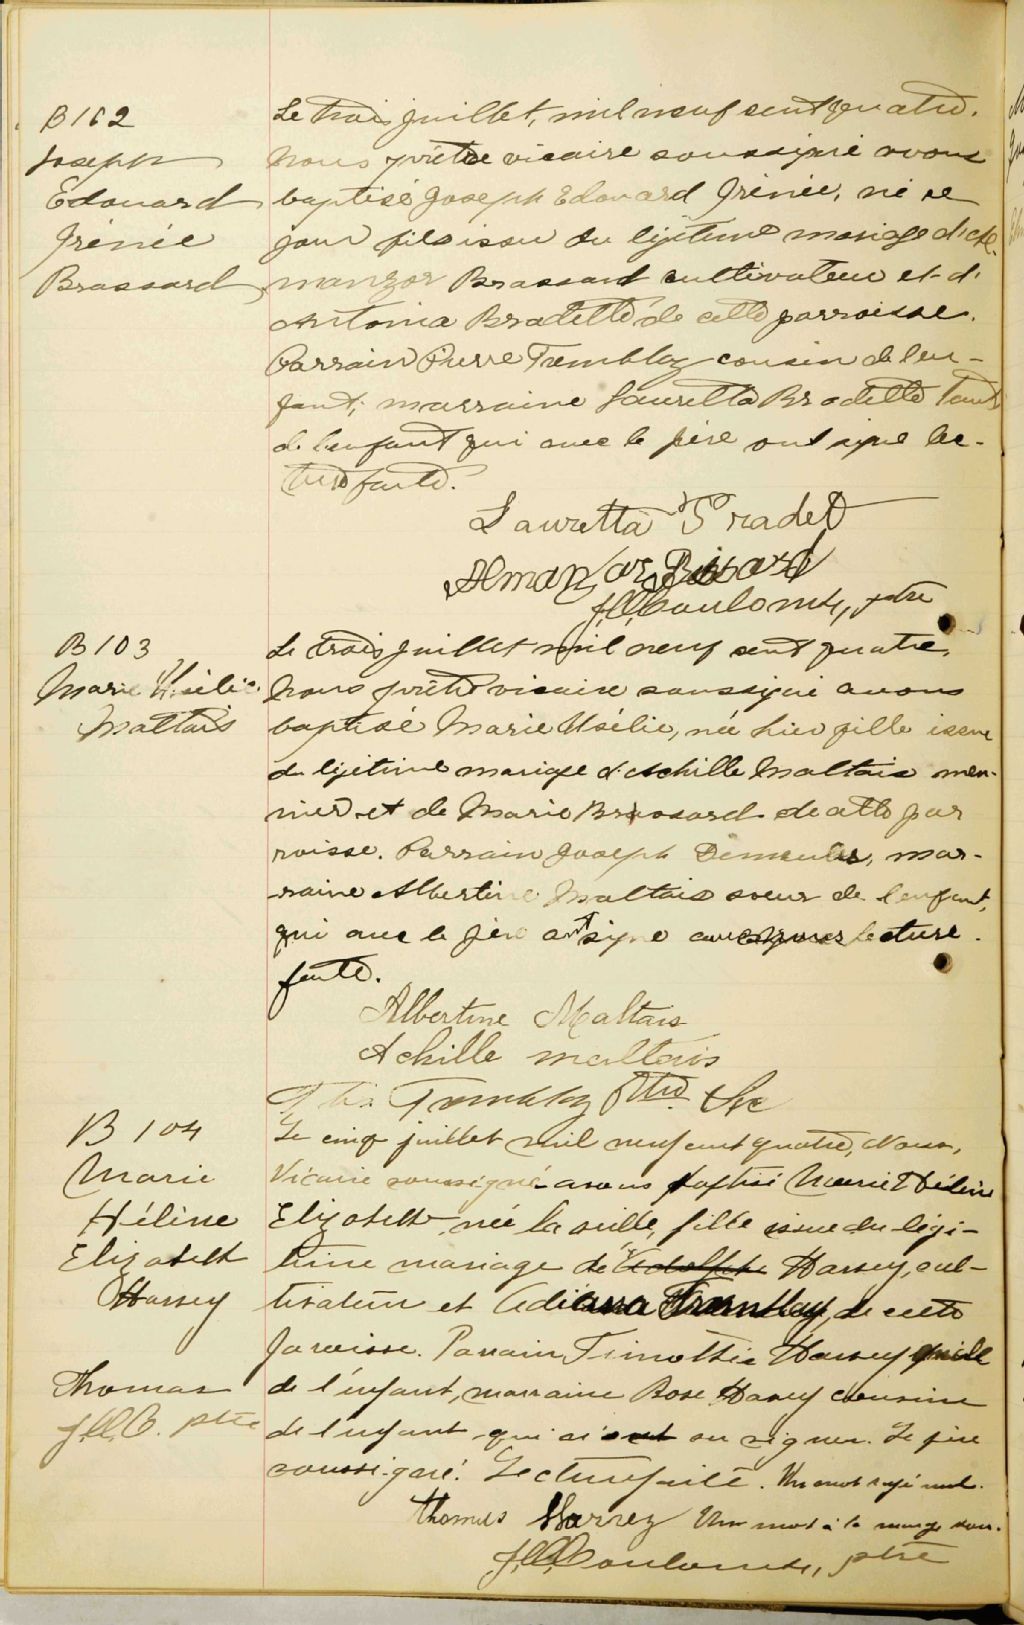 B 102
Joseph
Edouard
Irénée
Brassard
Le trois juillet, mil neuf cent quatre.
Nous prêtre vicaire soussigné avons
baptisé Joseph Edouard Irénée, né ce
jour fils issu du légitime mariage d'Al-
manzor Brassard cultivateur et d'
Antonia Bradette de cette parroisse.
Parrain Pierre Tremblay cousin de l'en-
fant; marraine Lauretta Bradette tante
de l'enfant qui avec le père ont signé lec-
ture faite.
Lauretta Bradet
Almanzor Brassard
J.A. Coulombe, ptre
B 103
Marie Usélie
Maltais
Le trois juillet mil neuf cent quatre,
Nous prêtre vicaire soussigné avons
baptisé Marie Usélie, née hier fille issue
du légitime mariage d'Achille Maltais meu-
nier et de Marie Brassard de cette par
roisse. Parrain Joseph Demeules, mar-
raine Albertine Maltais soeur de l'enfant,
qui avec le père ont signé lecture
faite.
Albertine Maltais
Achille maltais
Tremblay Ptre Vic
B 104
Marie
Hélène
Elizabeth
Harvey
Le cinq juillet mil neuf cent quatre, Nous,
Vicaire soussigné avons baptisé Marie Hélène
Elizabeth née la veille, fille issue du légi-
time mariage de Adolphe Harvey, cul-
tivateur et Adiana Tremblay, de cette
paroisse. Parrain Timothée Harvey
de l'enfant, marraine Rose Harvey cousine
de l'enfant qui n'ont su signer. Le père
soussigné. Lecture faite. Un mot rayé nul.
Thomas
J.A.C. ptre
Thomas Harvey Un mot à la marge bon.
J.A. Coulombe, ptre